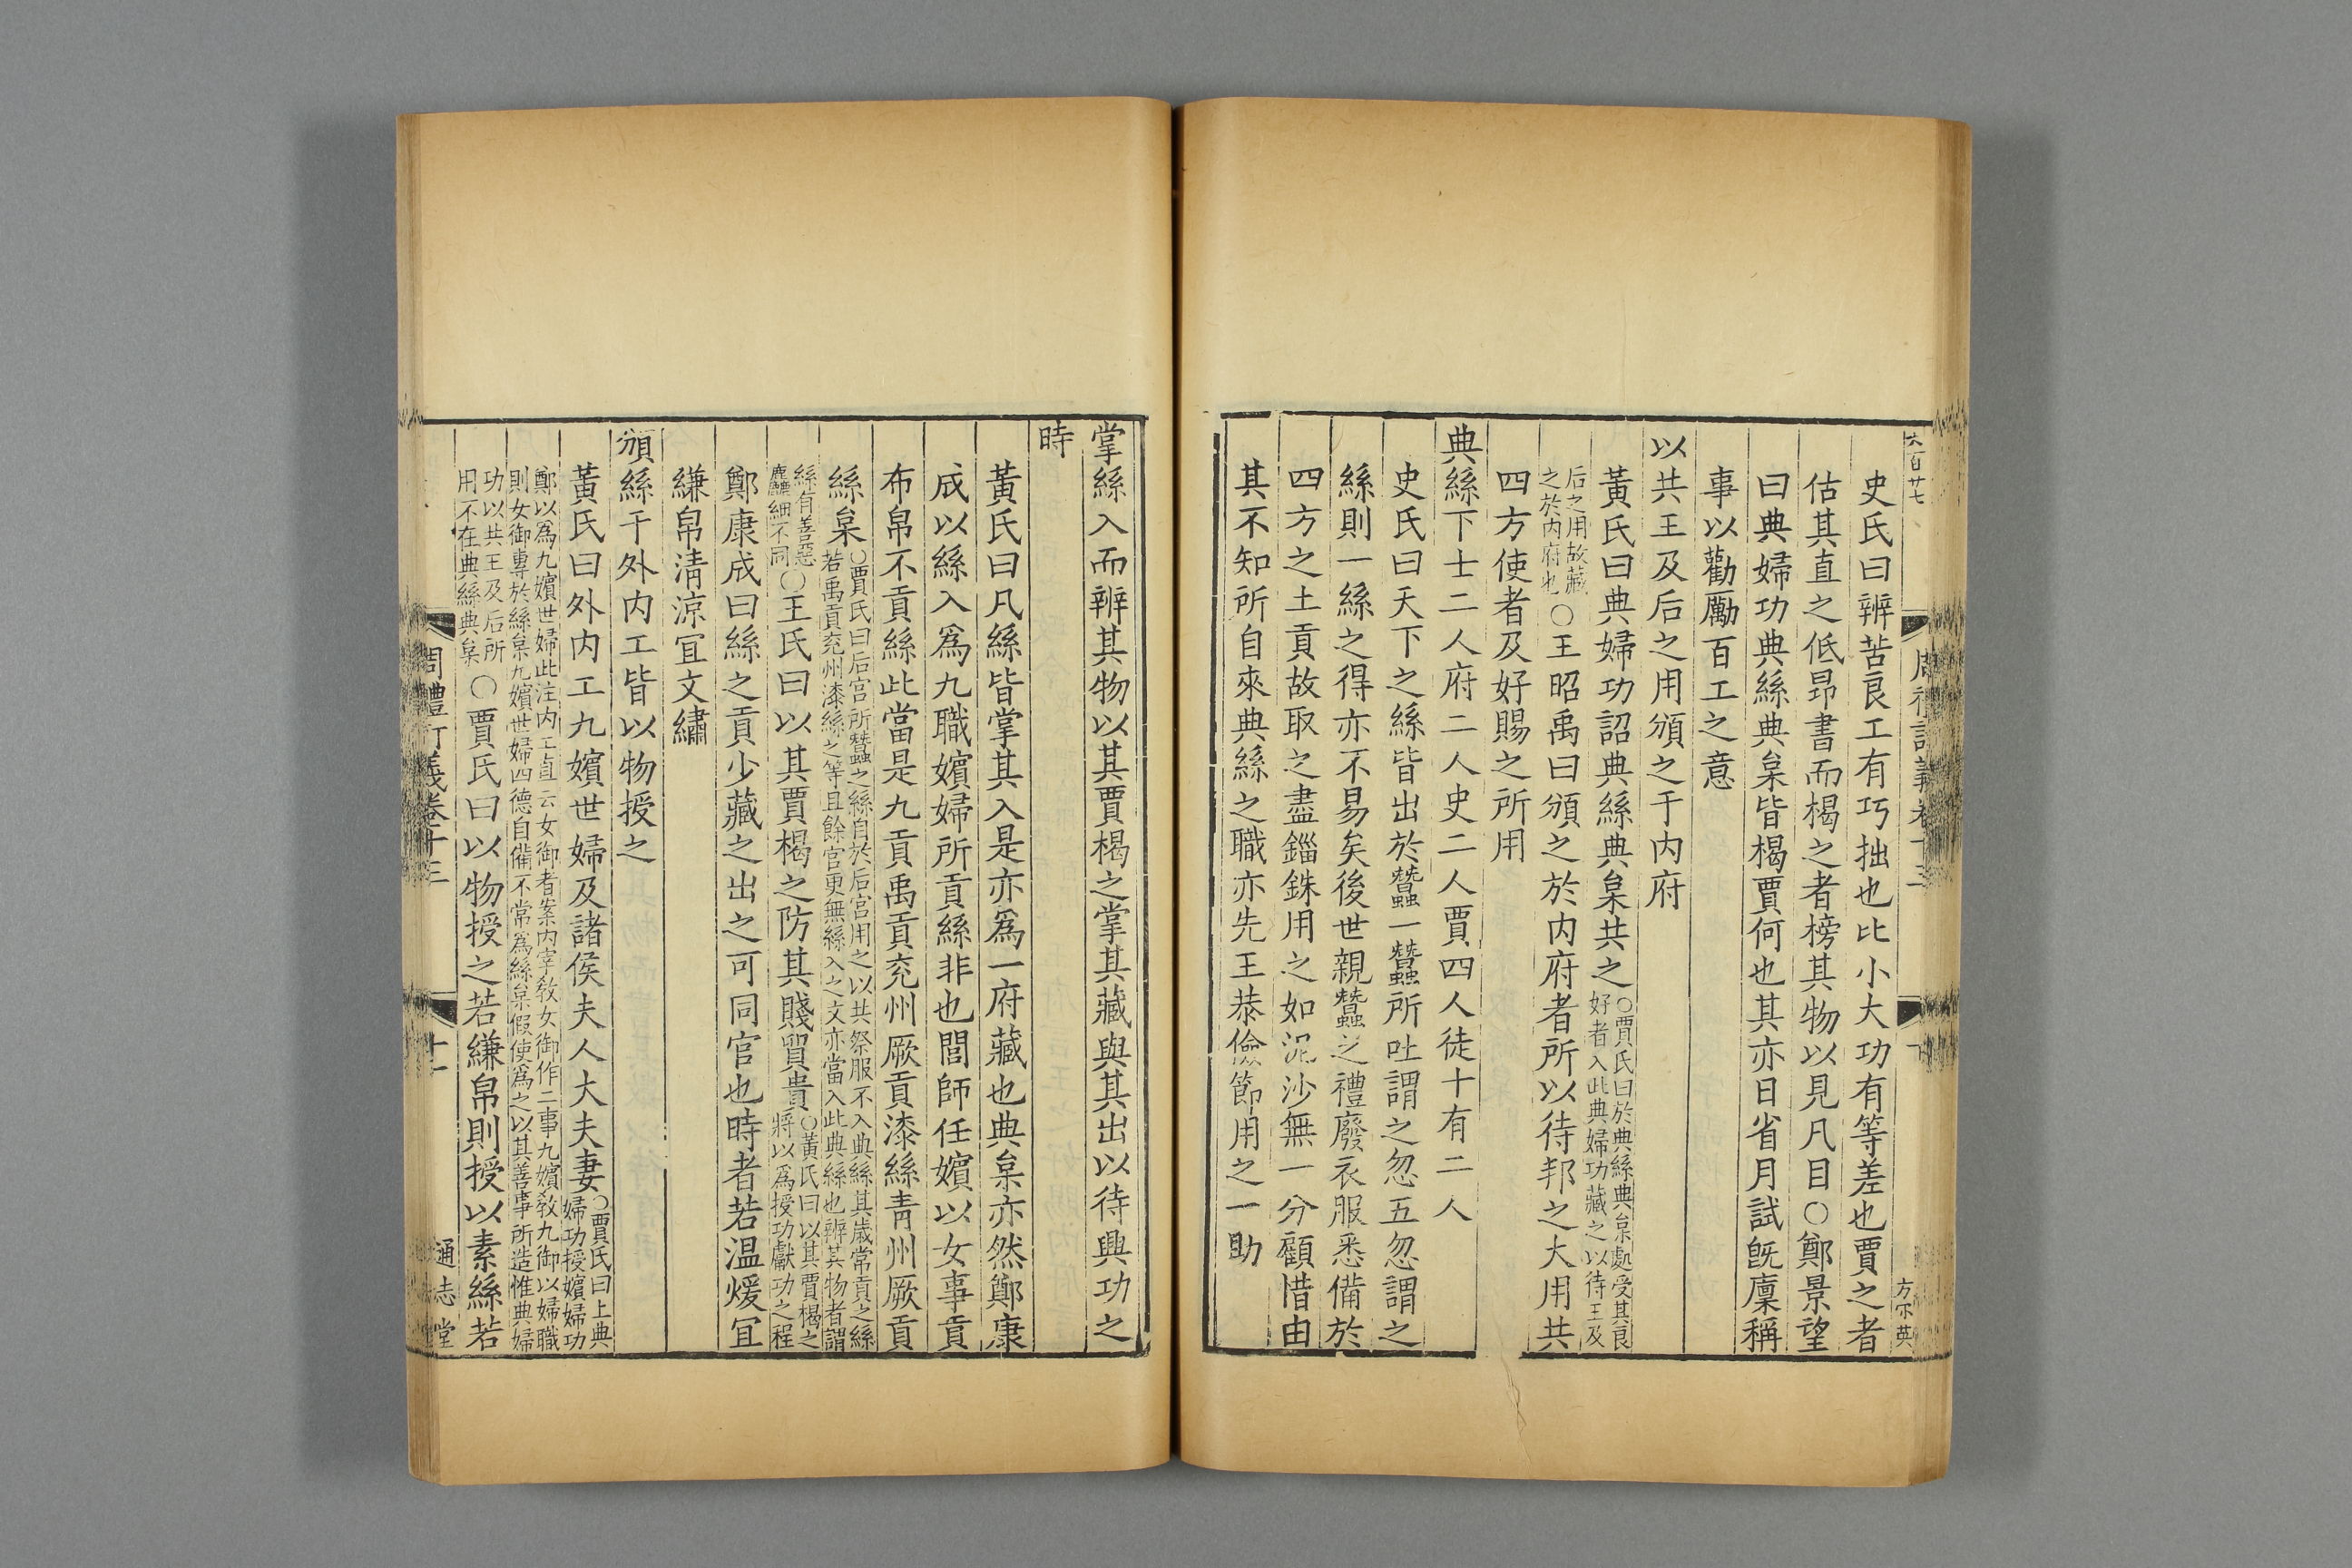 六百廿七
史氏曰辨苦良工有巧拙也比小大功有等差也賈之者
估其直之低昂書而楬之者榜其物以見凡目○鄭景望
曰典婦功典絲典枲皆楬賈何也其亦日省月試旣廩稱
事以勸勵百工之意
以共王及后之用頒之于内府
黃氏曰典婦功詔典絲典枲共之○賈氏曰於典絲典枲處受其良
好者入此典婦功藏之以待王及
后之用故藏
之於内府也○王昭禹曰頒之於内府者所以待邦之大用共
四方使者及好賜之所用
典絲下士二人府二人史二人賈四人徒十有二人
史氏曰天下之絲皆出於蠶一蠶所吐謂之忽五忽謂之
絲則一絲之得亦不易矣後世親蠶之禮廢衣服悉備於
四方之土貢故取之盡錙銖用之如泥沙無一分顧惜由
其不知所自來典絲之職亦先王恭儉節用之一助
掌絲入而辨其物以其賈楬之掌其藏與其出以待興功之
時
黃氏曰凡絲皆掌其入是亦爲一府藏也典枲亦然鄭康
成以絲入爲九職嬪婦所貢絲非也閭師任嬪以女事貢
布帛不貢絲此當是九貢禹貢兖州厥貢漆絲靑州厥貢
絲枲○賈氏曰后宫所蠶之絲自於后宫用之以共祭服不入典絲其歳常貢之絲
若禹貢兖州漆絲之等且餘官更無絲入之文亦當入此典絲也辨其物者謂
絲有善惡
麤細不同○王氏曰以其賈楬之防其賤貿貴○黃氏曰以其賈楬之
將以爲授功獻功之程
鄭康成曰絲之貢少藏之出之可同官也時者若溫煖冝
縑帛清涼冝文繡
頒絲于外内工皆以物授之
黃氏曰外内工九嬪世婦及諸侯夫人大夫妻○賈氏曰上典
婦功授嬪婦功
鄭以爲九嬪世婦此注内工直云女御者案内宰敎女御作二事九嬪敎九御以婦職
則女御專於絲枲九嬪世婦四德自備不常爲絲枲假使爲之以其善事所造惟典婦
功以共王及后所
用不在典絲典枲○賈氏曰以物授之若縑帛則授以素絲若
通志堂